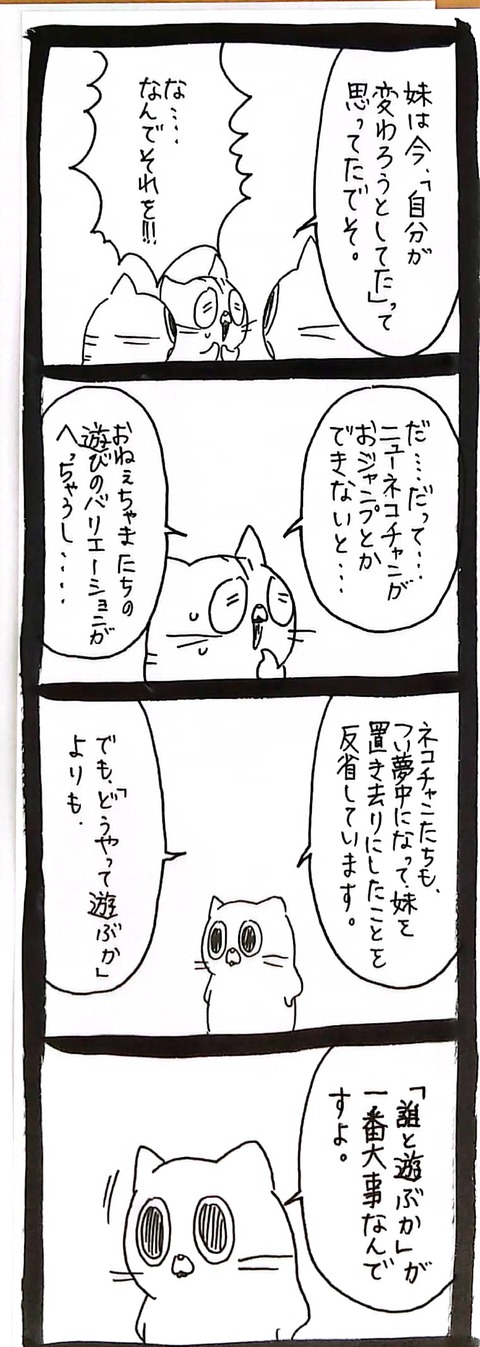 妹は今、「自分が
変わろうとしてた」って
思ってたでそ。
な‥‥
なんでそれを!!!
だ‥‥だって‥‥
ニューネコチャンが
おジャンプとか
できないと‥‥
おねぇちゃまたちの
遊びのバリエーションが
へっちゃうし‥‥‥
ネコチャンたちも、
つい夢中になって、妹を
置き去りにしたことを
反省しています。
でも、「どうやって遊ぶか」
よりも、
「誰と遊ぶか」が
一番大事なんで
すよ。